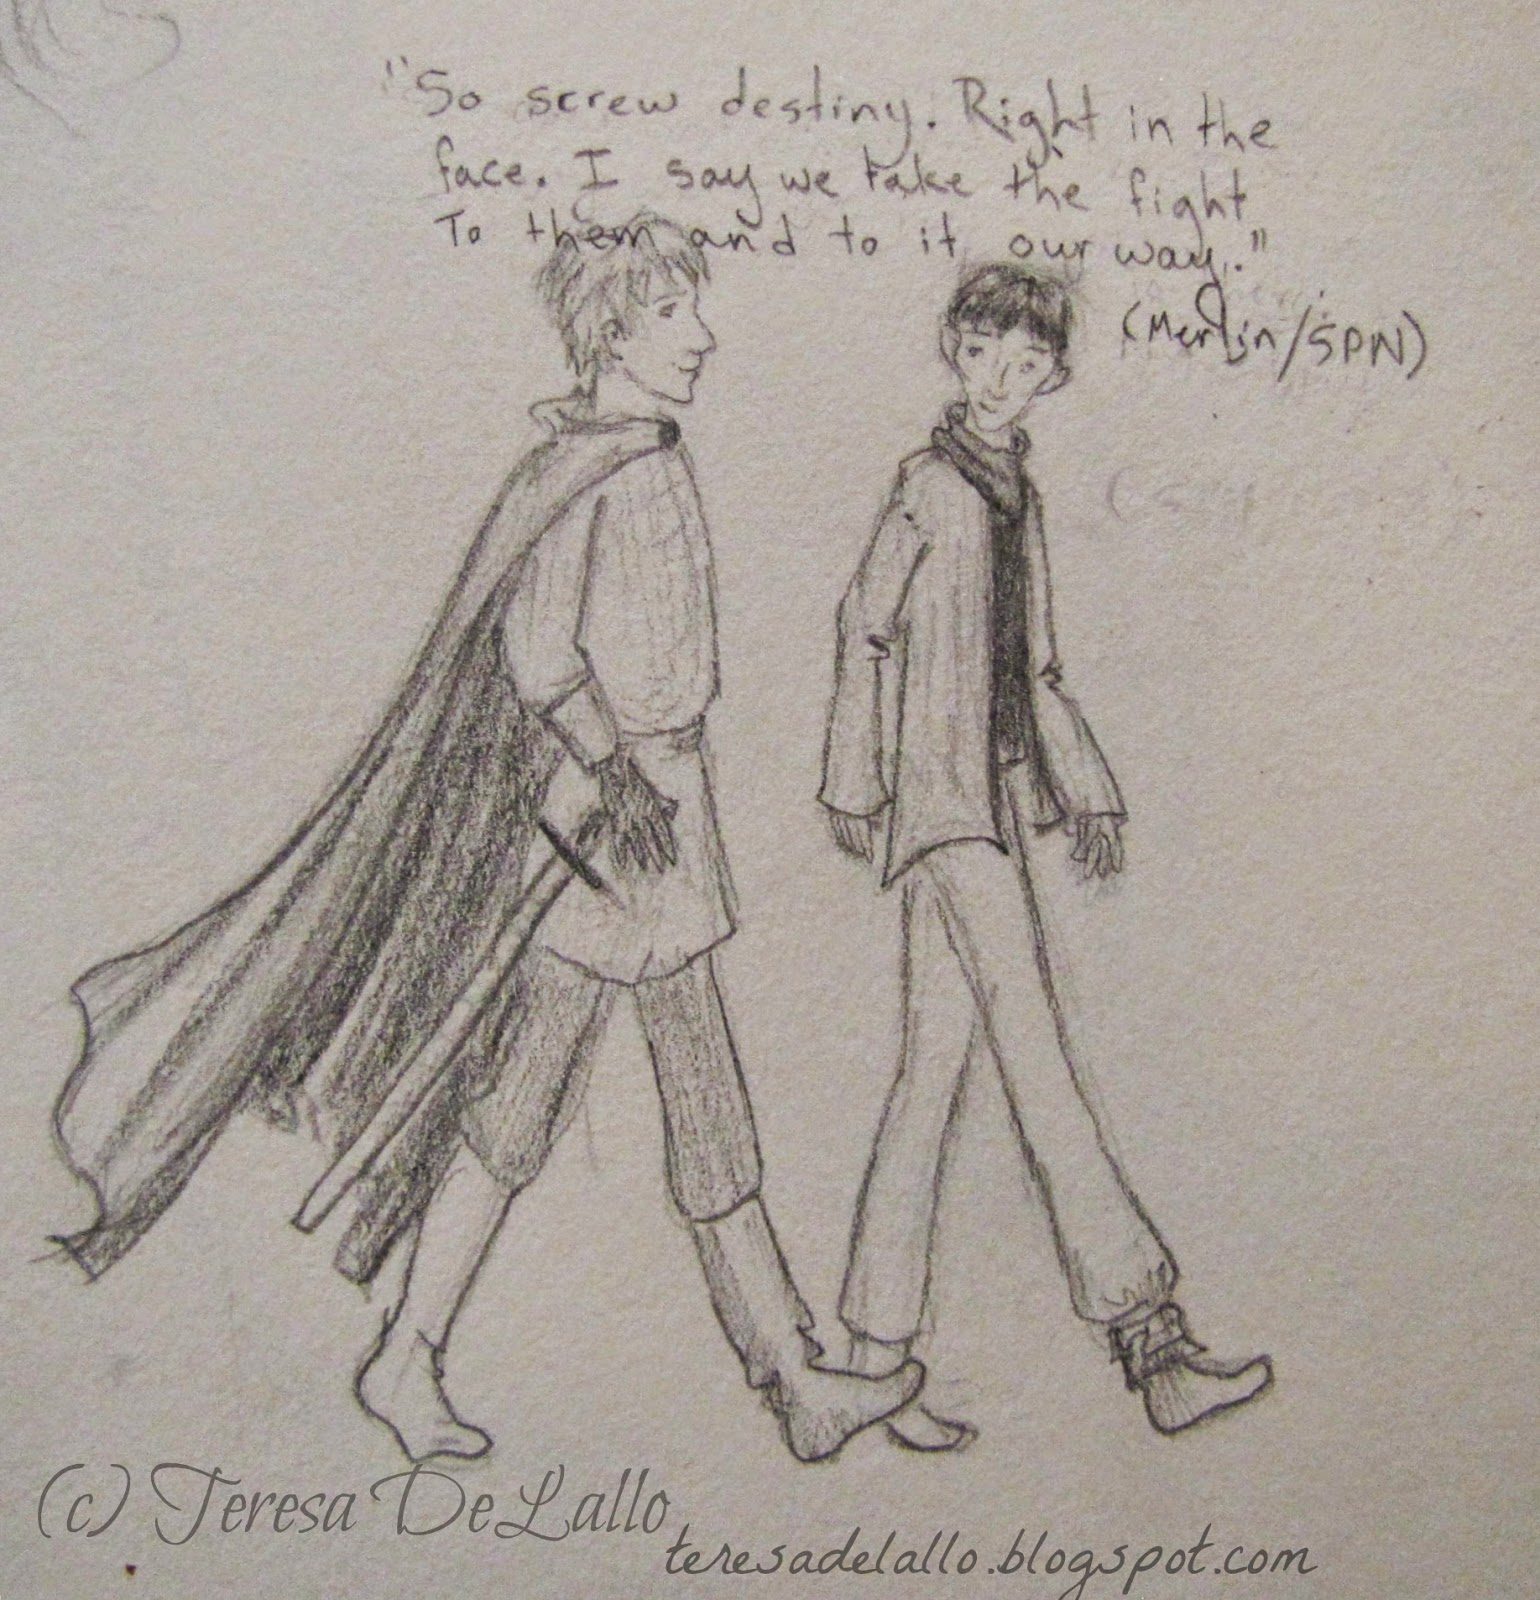 "So screw destiny. Right in the
face. I say we take the fight
To them and to it our way."
(Merlin/SPN)
(c) Teresa DeLallo
teresadelallo.blogspot.com